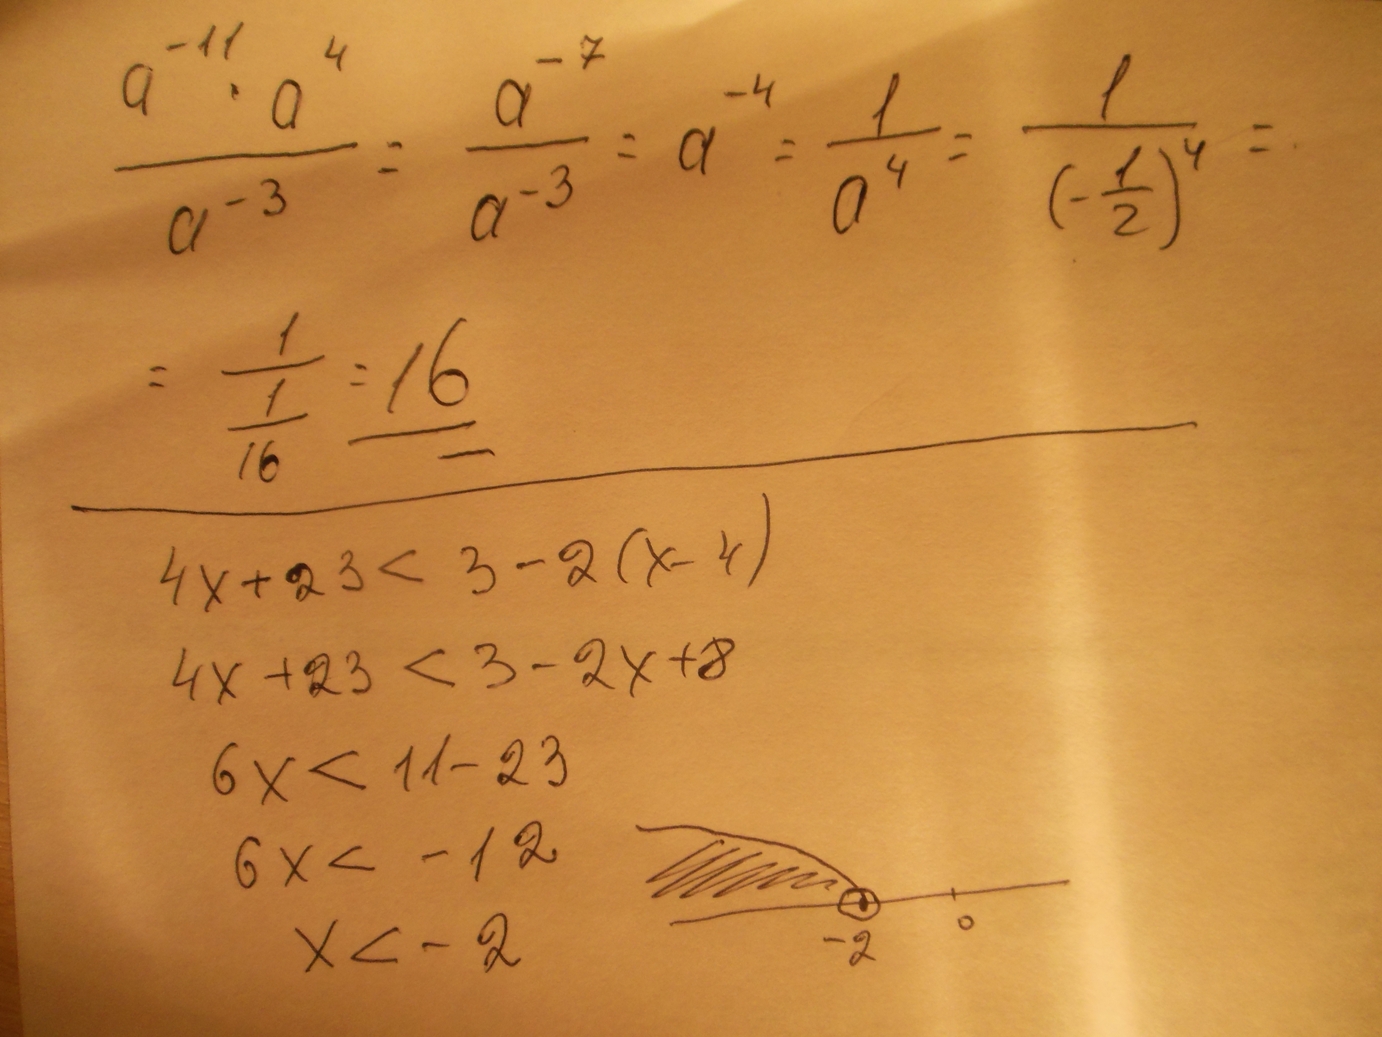 a^-11 · a^4 / a^-3 = a^-7 / a^-3 = a^-4 = 1 / a^4 = 1 / (-1/2)^4 =
= 1 / (1/16) = 16
4x+23 < 3-2(x-4)
4x+23 < 3-2x+8
6x < 11-23
6x < -12
x < -2
-2 0